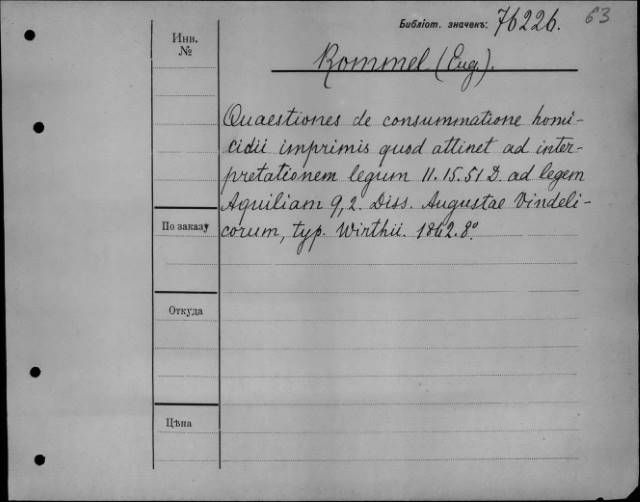 Библіот. значекъ: 76226. 63
Инв.
№
Rommel (Eug.).
Quaestiones de consummatione homi-
cidii imprimis quod attinet ad inter-
pretationem legum 11. 15. 51 D. ad legem
Aquiliam 9,2. Diss. Augustae Vindeli-
По заказу
corum, typ. Wirthii. 1862. 8º.
Откуда
Цѣна